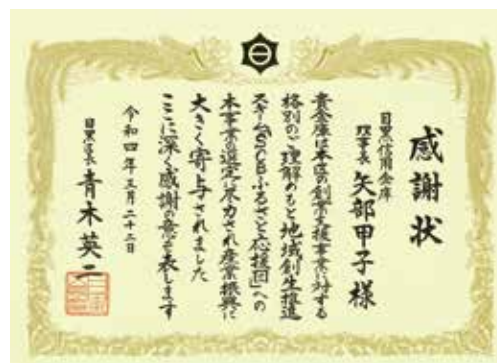 感謝状
目黒信用金庫
理事長 矢部甲子様
貴金庫は本区の創業支援事業に対する
格別のご理解のもと地域創生推進
スキーム「SCBふるさと応援団」への
本事業の選定に尽力され産業振興に
大きく寄与されました
ここに深く感謝の意を表します
令和四年三月二十二日
目黒区長 青木英二